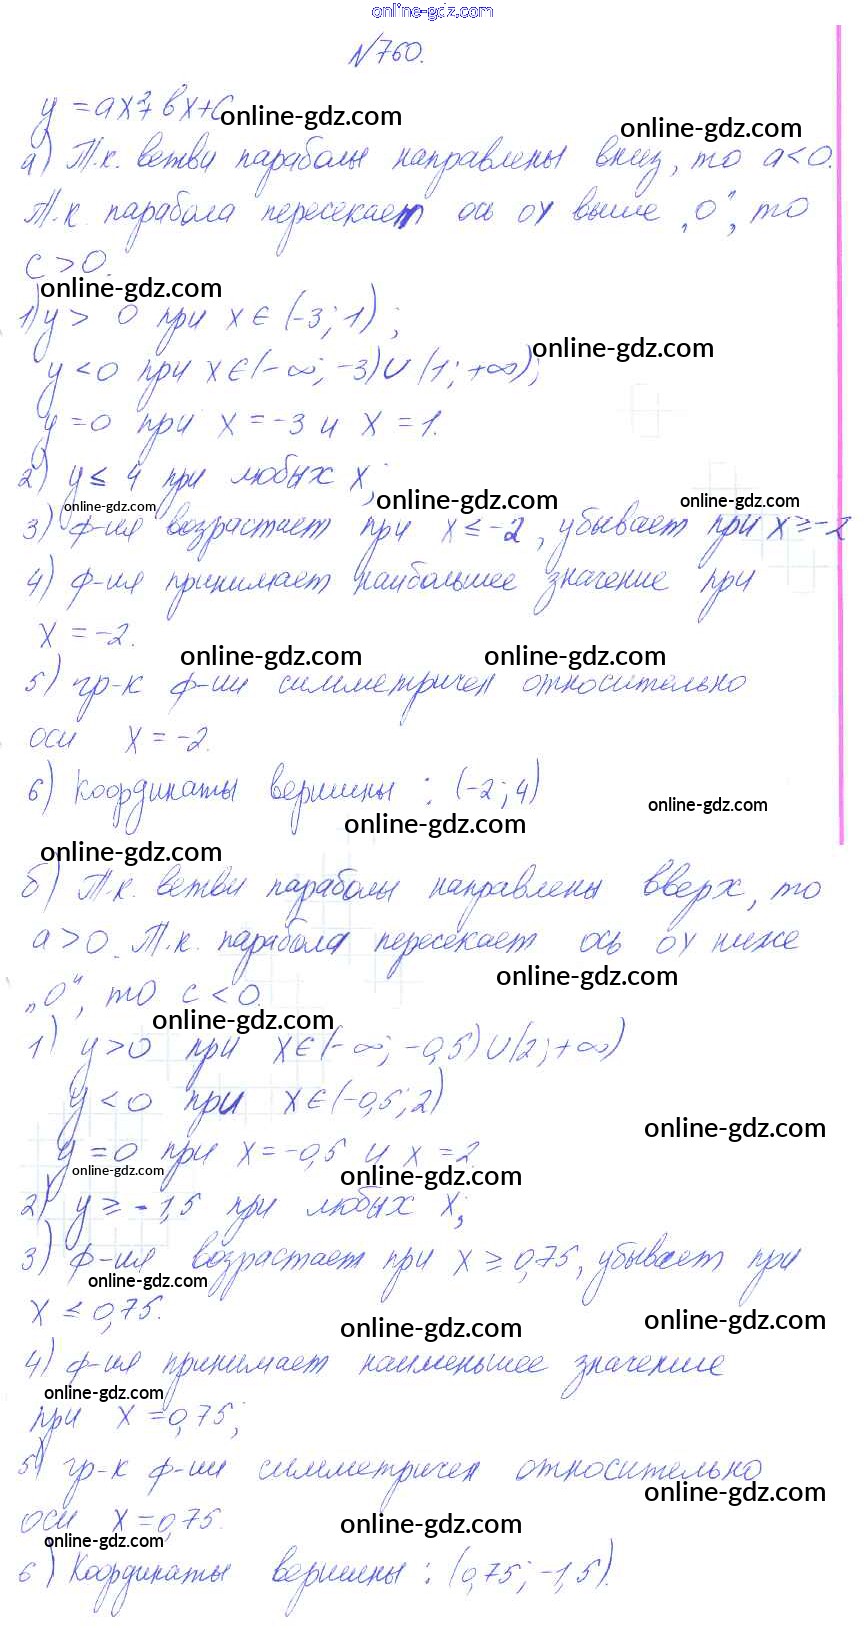 online-gdz.com
№760.
y = ax²+ bx+c
online-gdz.com
online-gdz.com
а) Т.к. ветви параболы направлены вниз, то a<0.
Т.к. парабола пересекает ось oy выше „0", то
c>0.
online-gdz.com
1) y> 0 при x∈(-3; 1);
online-gdz.com
y<0 при x∈(-∞; -3)∪(1; +∞);
y=0 при x=-3 и x=1.
2) y≤ 4 при любых x;
online-gdz.com
online-gdz.com
online-gdz.com
3) ф-ия возрастает при x≤-2, убывает при x≥-2
4) ф-ия принимает наибольшее значение при
x=-2.
online-gdz.com
online-gdz.com
5) гр-к ф-ии симметричен относительно
оси x=-2.
6) Координаты вершины : (-2; 4)
online-gdz.com
online-gdz.com
online-gdz.com
б) Т.к. ветви параболы направлены вверх, то
a>0. Т.к. парабола пересекает ось oy ниже
online-gdz.com
„0", то c<0.
online-gdz.com
1) y>0 при x∈(-∞; -0,5)∪(2; +∞)
y<0 при x∈(-0,5; 2)
online-gdz.com
y=0 при x=-0,5 и x=2.
online-gdz.com
online-gdz.com
2) y≥-1,5 при любых x;
3) ф-ия возрастает при x≥0,75, убывает при
online-gdz.com
x≤0,75.
online-gdz.com
online-gdz.com
4) ф-ия принимает наименьшее значение
online-gdz.com
при x=0,75;
5) гр-к ф-ии симметричен относительно
online-gdz.com
оси x=0,75.
online-gdz.com
online-gdz.com
6) Координаты вершины : (0,75; -1,5).